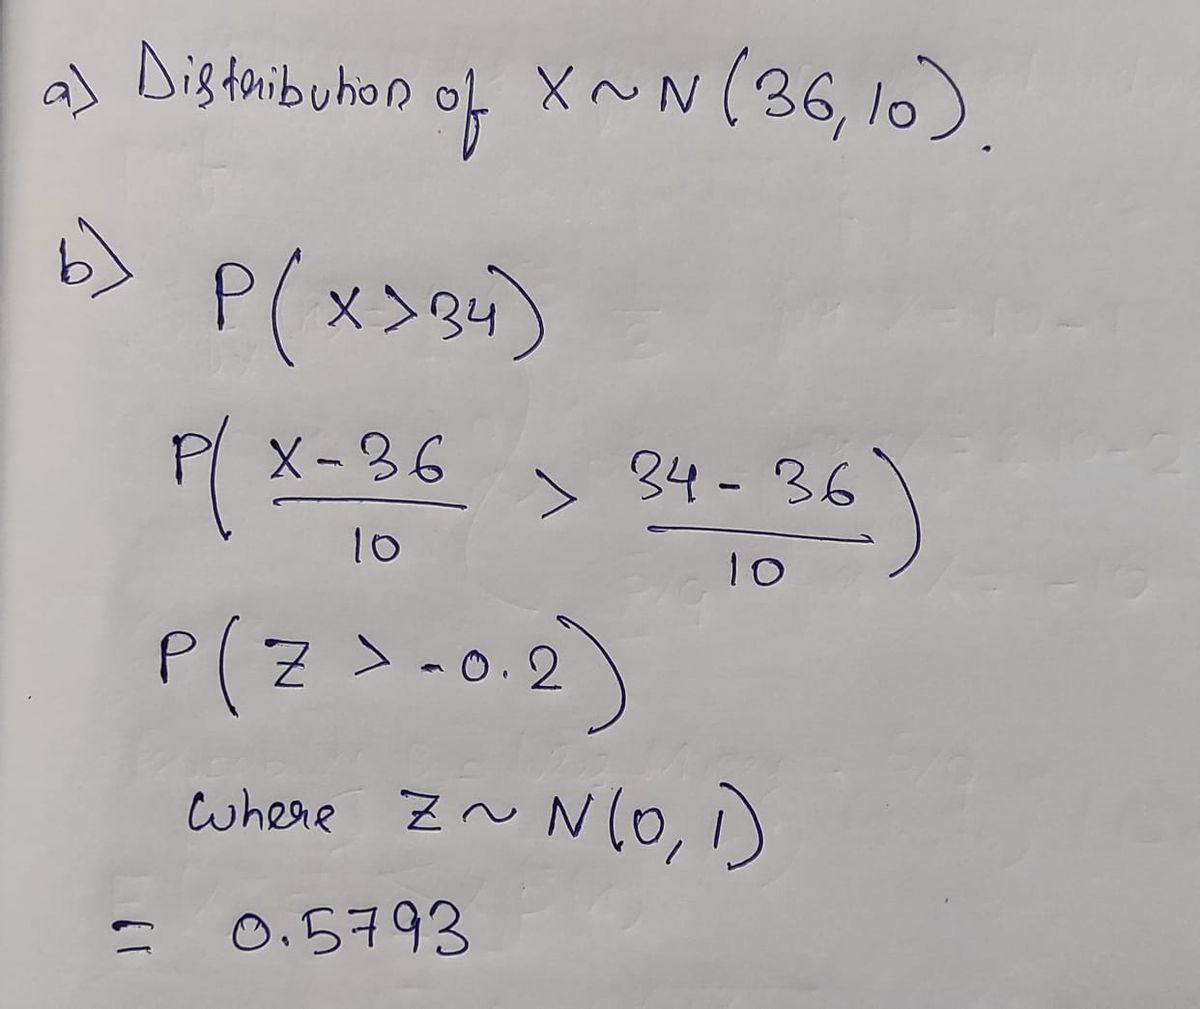 a) Distribution of X ~ N(36, 10).
b) P(X > 34)
P( X - 36 / 10 > 34 - 36 / 10 )
P(Z > -0.2)
where Z ~ N(0, 1)
= 0.5793